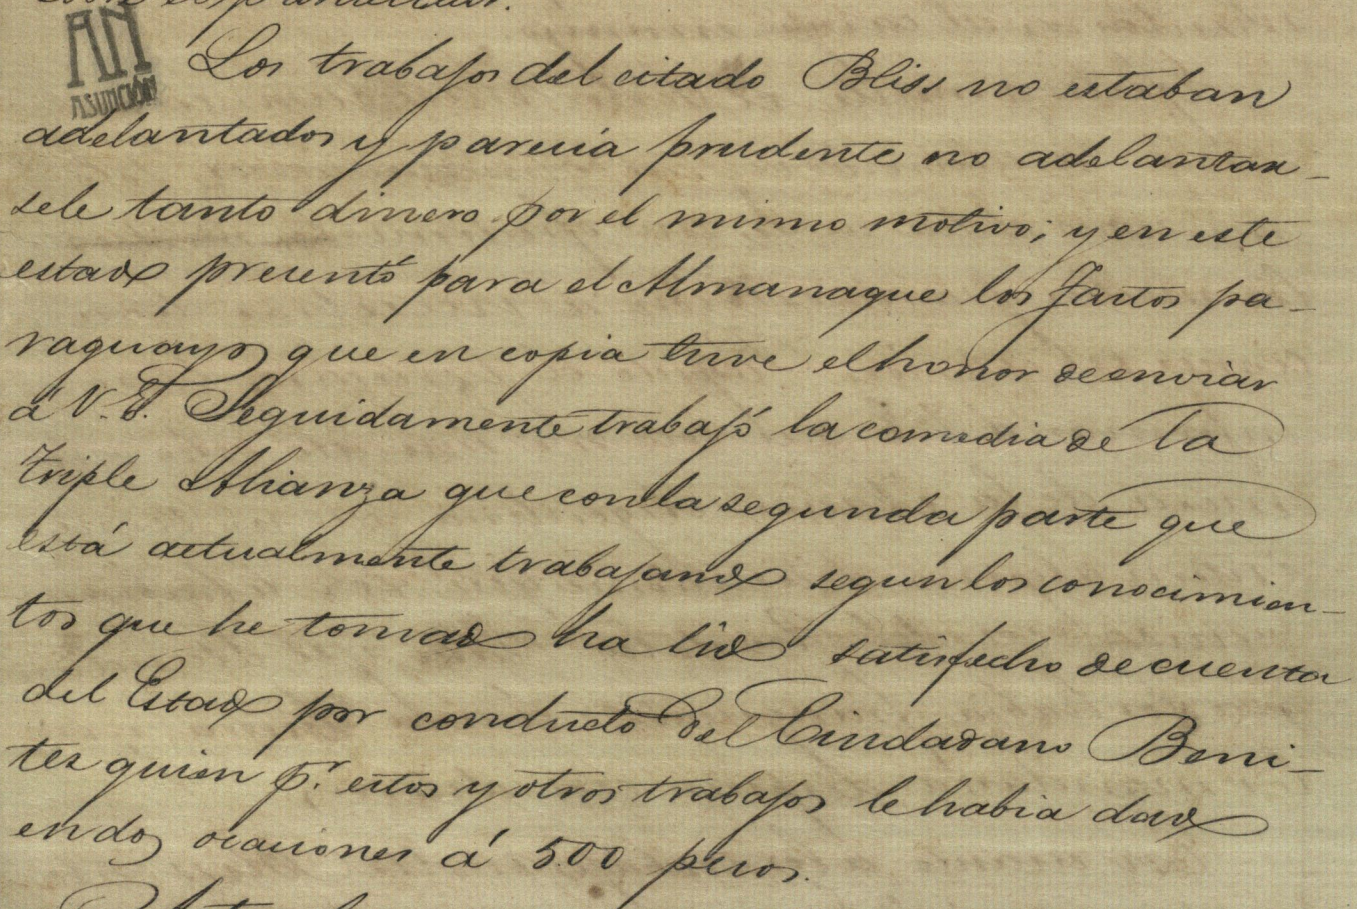 AN
ASUNCIÓN
Los trabajos del citado Bliss no estaban
adelantados y parecia prudente no adelantar-
sele tanto dinero por el mismo motivo; y en este
estado presentó para el Almanaque los Fastos pa-
raguayos que en copia tuve el honor de enviar
á V. E. Seguidamente trabajó la comedia de la
Triple Alianza que con la segunda parte que
está actualmente trabajando segun los conocimien-
tos que he tomado ha sido satisfecho de cuenta
del Estado por conducto del Ciudadano Beni-
tez quien pr. estos y otros trabajos le habia dado
en dos ocaciones á 500 pesos.